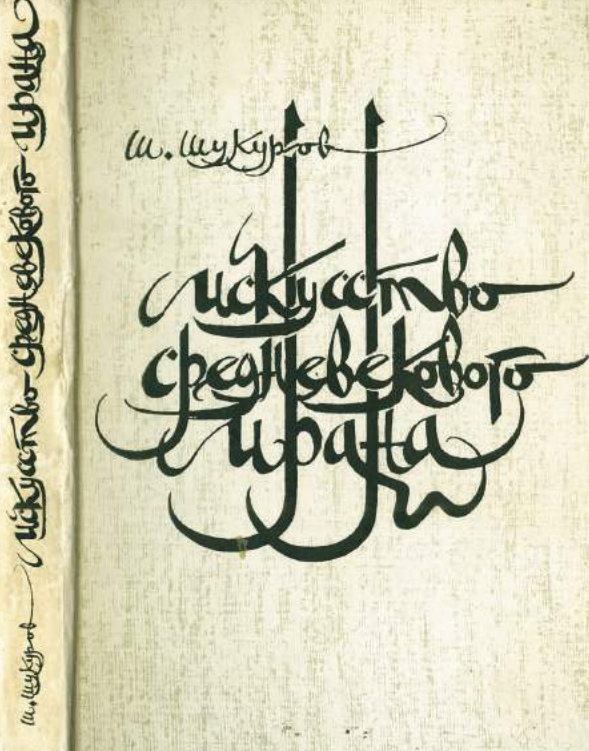 Ш. Шукуров
Искусство
средневекового
Ирана
Ш. Шукуров Искусство средневекового Ирана